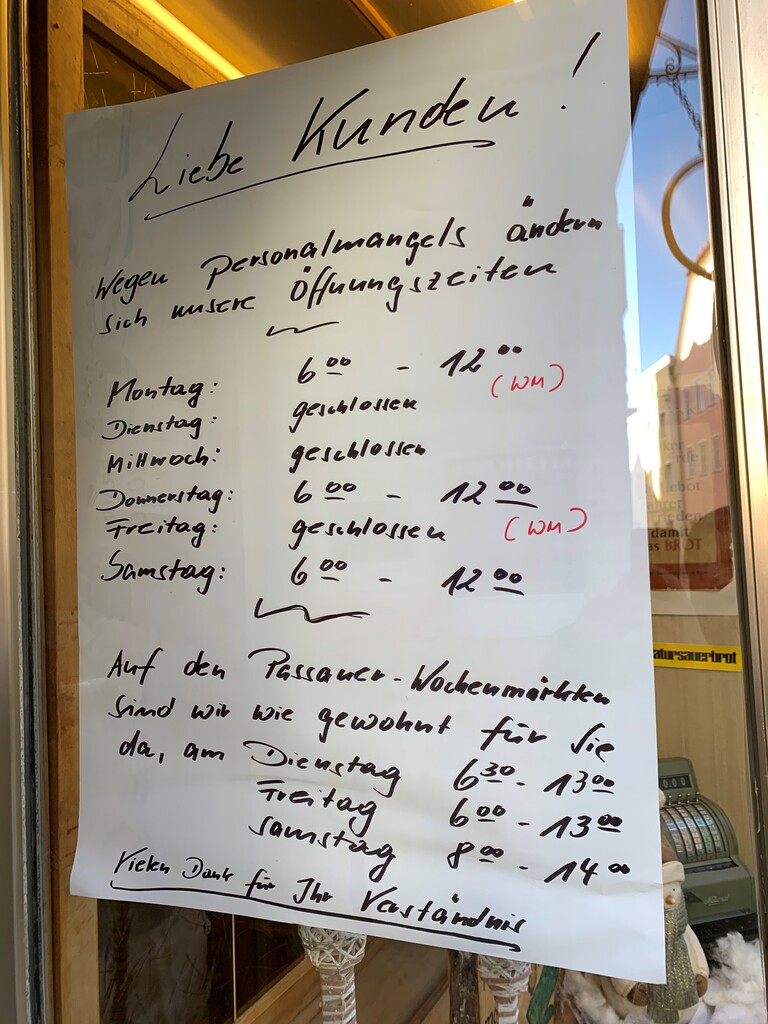 Liebe Kunden!
Wegen Personalmangels ändern
sich unsere Öffnungszeiten
Montag: 6⁰⁰ - 12⁰⁰
(WM)
Dienstag: geschlossen
Mittwoch: geschlossen
Donnerstag: 6⁰⁰ - 12⁰⁰
Freitag: geschlossen (WM)
Samstag: 6⁰⁰ - 12⁰⁰
Auf den Passauer-Wochenmärkten
sind wir wie gewohnt für Sie
da, am Dienstag 6³⁰ - 13⁰⁰
Freitag 6⁰⁰ - 13⁰⁰
Samstag 8⁰⁰ - 14⁰⁰
Vielen Dank für Ihr Verständnis
damit
BROT
atursauerbrot